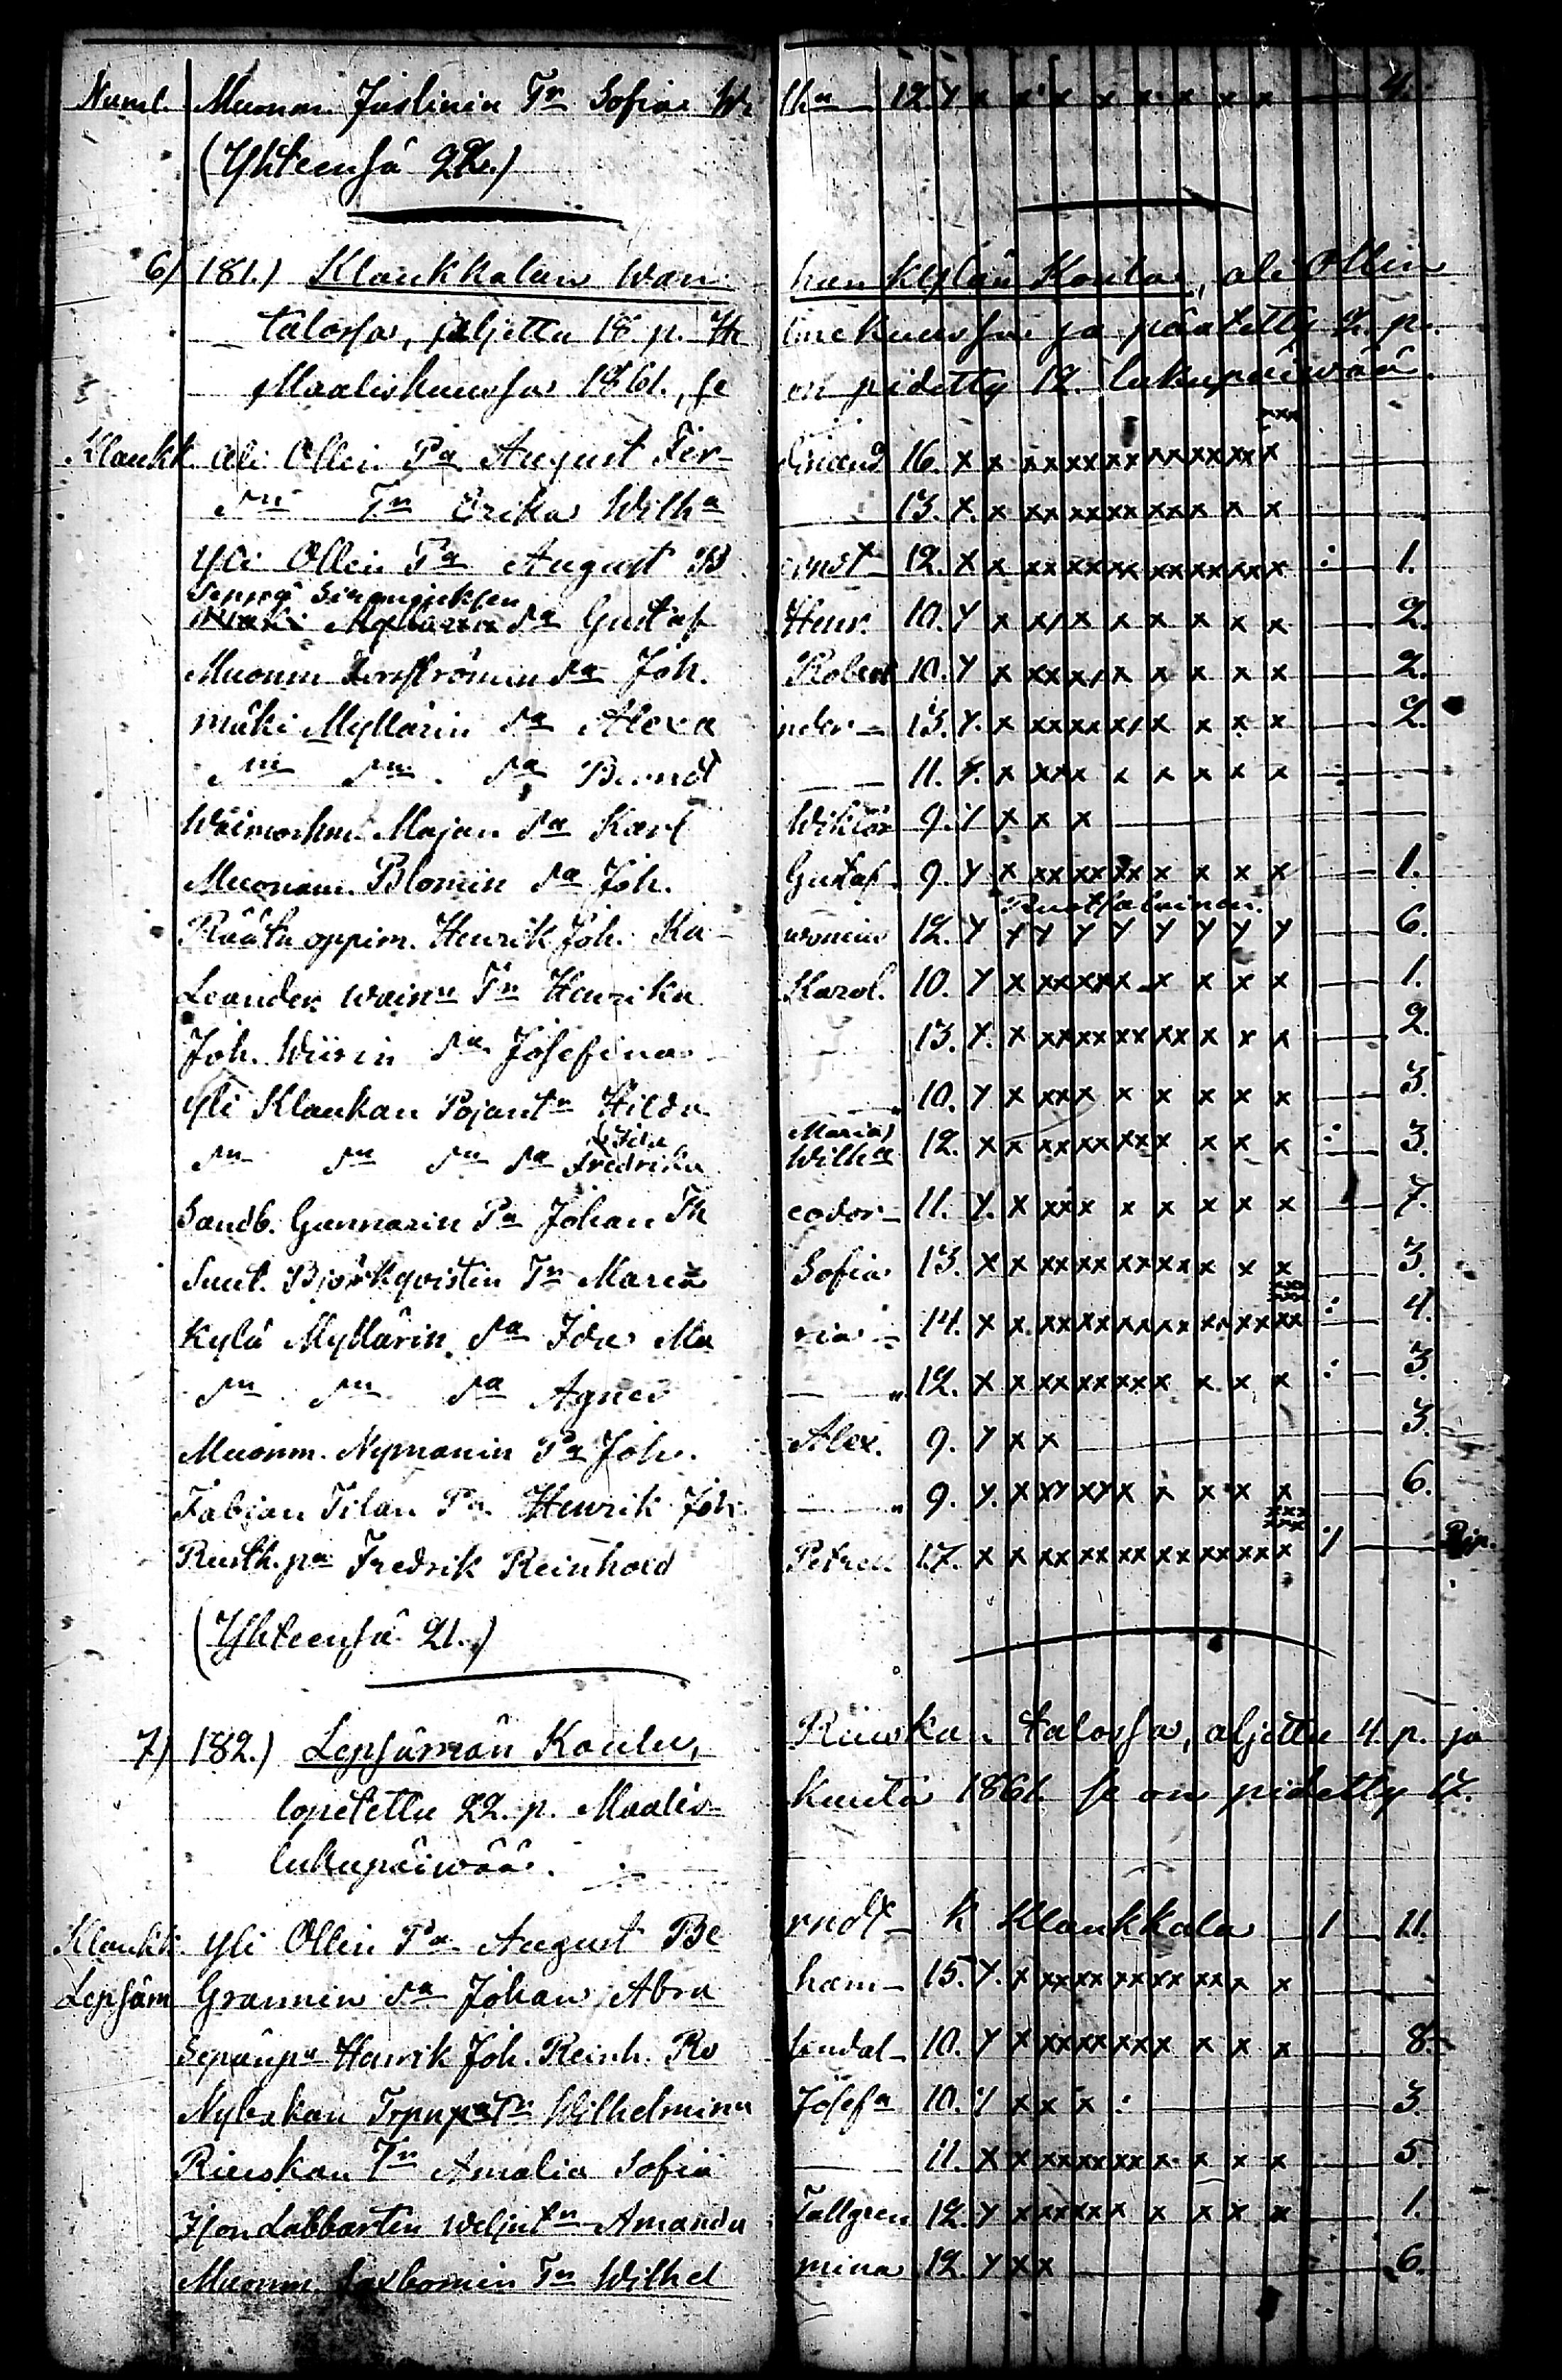 Numl. Muonm. Juslinin Tr Sofia Wilha 12. y x x x x x x x x 4.
(Yhteensä 22.)
6) 181.) Klaukkalan Wanhan kylän Koulu, ali Ollin
talossa, aljettu 18. p. Helmekuussa ja päätetty 2. p.
Maaliskuussa 1861., se on pidetty 12. lukupäiwää.
Klaukk. Ali Ollin Pa August Ferdinand 16. x x xx xx xx xx xx xx x
Tr Erika Wilha 13. x. x xx xx xx xx x x x x
Yli Ollin Pa August Bernst 12. x x xx xx xx xx xx xx x : 1.
Seppä Simonuksen
Gustaf Henr. 10. y x x x x x x x x 2.
Muonm. Joh. Robert 10. y x xx x x x x x x 2.
Mäki Myllärin Alexander 13. y. x xx xx x x x x x 2.
Berndt 11. y. x xx x x x x x x
Majan Karl Wiktor 9. y x x x
Muonam. Blomin Joh. Gustaf 9. y x xx xx xx x x x x 1.
Räätu oppim. Henrik Joh. 12. y y y y y y y y y 6.
Leander Henrika Karol. 10. y x xx xx x x x x x 1.
Joh. Wiirin Josefina 13. y. x xx xx xx xx x x x 2.
Yli Klaukan Pojant. Hilda 10. y x xx x x x x x x 3.
(Ida Maria)
Fredrika Wilha 12. x x xx xx xx x x x x : 3.
Sandb. Gunnarin Pa Johan Theodor 11. y. x xx x x x x x x 7.
Suut. Björkqvistin Tr Maria Sofia 13. x x xx xx xx xx x x x 3.
Kylä Myllärin Ida Maria 14. x x xx xx xx xx xx xx xx : 4.
Agnes 12. x x xx xx xx x x x x : 3.
Muonm. Nymanin Pa Joh. Alex. 9. y x x 3.
Fabian Tilan Pa Henrik Joh. 9. y. x xy xy x x x x x 6.
Rusth. pa Fredrik Reinhold Petrell 17. x x xx xx xx xx xx xx x
(Yhteensä 21.)
7) 182.) Lepsämän Koulu, Riuskan talossa, aljettu 4. p. ja
lopetettu 22. p. Maaliskuuta 1861 se on pidetty 17.
lukupäiwää.
Klaukk. Yli Ollin Pa August Berndt k Klaukkala 1 11.
Lepsäm Grannin Johan Abraham 15. y. x xx xx xx xx xx x x
Sepänpa Henrik Joh. Reinh. Rosendal 10. y x xx xx xx x x x x 8.
Wilhelmina Josefa 10. y x x x : 3.
Riuskan Tr Amalia Sofia 11. x x xx xx xx x x x x 5.
Amanda Tallgren 12. y x xx xx x x x x x 1.
Muonm. Tr Wilhelmina 12. y x x 6.